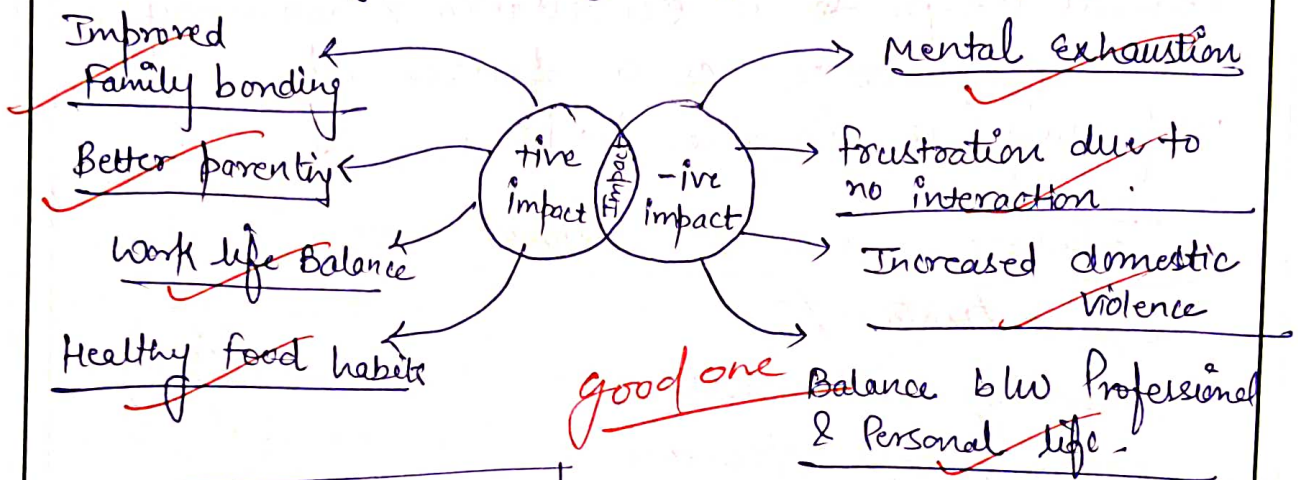 Improved
Family bonding
Better parentig
Work life Balance
Healthy food habits
+ive
impact
Impact
-ive
impact
Mental Exhaustion
frustration due to
no interaction.
Increased domestic
violence
Balance b/w Professional
& Personal life.
good one